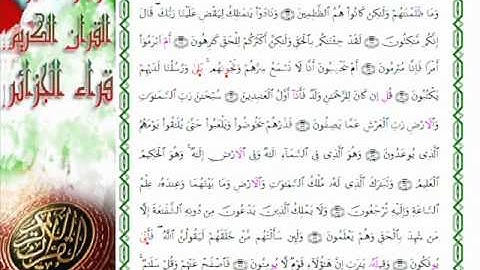 القرآن الكريم
قراء الجزائر
وَمَا ظَلَمْنَٰهُمْ وَلَٰكِن كَانُوا۟ هُمُ ٱلظَّٰلِمِينَ وَنَادَوْا۟ يَٰمَٰلِكُ لِيَقْضِ عَلَيْنَا رَبُّكَ قَالَ
إِنَّكُم مَّٰكِثُونَ لَقَدْ جِئْنَٰكُم بِٱلْحَقِّ وَلَٰكِنَّ أَكْثَرَكُمْ لِلْحَقِّ كَٰرِهُونَ أَمَ ابْرَمُوٓا۟
أَمْرًا فَإِنَّا مُبْرِمُونَ أَمْ يَحْسِبُونَ أَنَّا لَا نَسْمَعُ سِرَّهُمْ وَنَجْوَىٰهُم بَلَىٰ وَرُسُلُنَا لَدَيْهِمْ
يَكْتُبُونَ قُلِ ان كَانَ لِلرَّحْمَٰنِ وَلَدٌ فَأَنَا أَوَّلُ ٱلْعَٰبِدِينَ سُبْحَٰنَ رَبِّ ٱلسَّمَٰوَٰتِ
وَالَارْضِ رَبِّ ٱلْعَرْشِ عَمَّا يَصِفُونَ فَذَرْهُمْ يَخُوضُوا۟ وَيَلْعَبُوا۟ حَتَّىٰ يُلَٰقُوا۟ يَوْمَهُمُ
ٱلَّذِى يُوعَدُونَ وَهُوَ ٱلَّذِى فِى ٱلسَّمَآءِ إِلَٰهٌ وَفِى الَارْضِ إِلَٰهٌ وَهُوَ ٱلْحَكِيمُ
ٱلْعَلِيمُ وَتَبَٰرَكَ ٱلَّذِى لَهُۥ مُلْكُ ٱلسَّمَٰوَٰتِ وَالَارْضِ وَمَا بَيْنَهُمَا وَعِندَهُۥ عِلْمُ
ٱلسَّاعَةِ وَإِلَيْهِ تُرْجَعُونَ وَلَا يَمْلِكُ ٱلَّذِينَ يَدْعُونَ مِن دُونِهِ ٱلشَّفَٰعَةَ إِلَّا
مَن شَهِدَ بِٱلْحَقِّ وَهُمْ يَعْلَمُونَ وَلَئِن سَأَلْتَهُم مَّنْ خَلَقَهُمْ لَيَقُولُنَّ ٱللَّهُ فَأَنَّىٰ
يُوفَكُونَ وَقِيلَهُۥ يَٰرَبِّ إِنَّ هَٰٓؤُلَآءِ قَوْمٌ لَّا يُومِنُونَ فَٱصْفَحْ عَنْهُمْ وَقُلْ سَلَٰمٌ